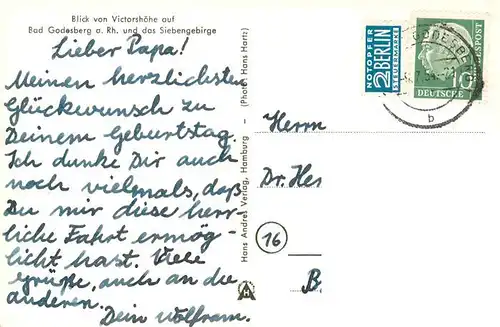 Blick von Victorshöhe auf
Bad Godesberg a. Rh. und das Siebengebirge
Lieber Papa!
Meinen herzlichsten
Glückwunsch zu
Deinem Geburtstag.
Ich danke Dir auch
noch vielmals, daß
Du mir diese herr-
liche Fahrt ermög-
licht hast. Viele
Grüße, auch an die
anderen.
Dein Wolfram.
Hans Andres Verlag, Hamburg - (Photo: Hans Hartz)
NOTOPFER
2 BERLIN
STEUERMARKE
DEUTSCHE
b
Herrn
Dr. Her
16
B.